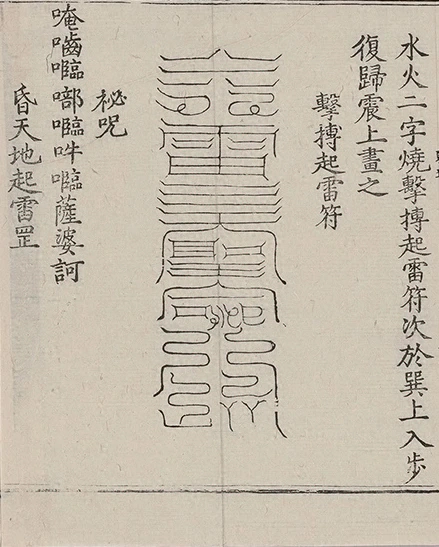 水火二字燒擊搏起雷符次於巽上入步
復歸震上畫之
擊搏起雷符
祕呪
唵嚙吽薩婆訶
昏天地起雷罡